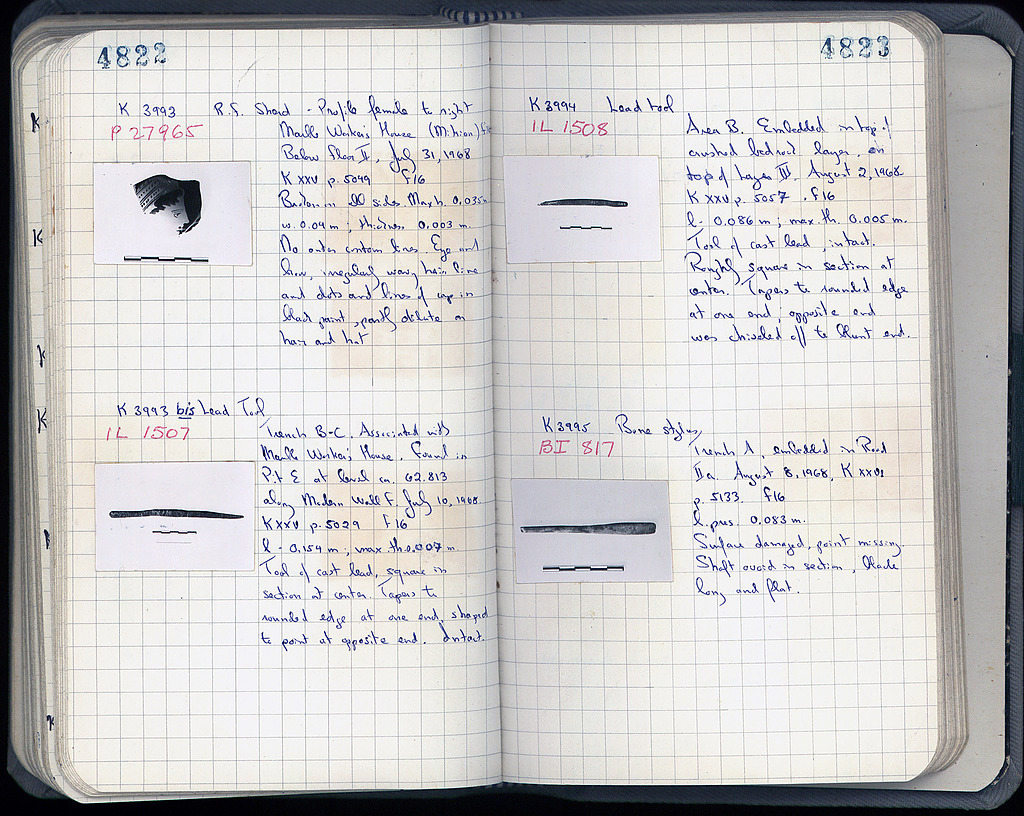 4822
K 3993 R.F. Sherd - Profile female to right
P 27965
Marble Worker's House (Mikion)
Below Floor II, July 31, 1968
K XXV p. 5049 f16
Broken on all sides. Max h. 0.035m
w. 0.04 m; thickness 0.003 m.
No outer contour lines. Eye and
brow, irregularly wavy hair line
and dots and lines of cap in
black paint, partly dilute on
hair and hat
K 3993 bis Lead Tool
IL 1507
Trench B-C. Associated with
Marble Worker's House. Found in
Pit E at level ca. 62.813
along Modern Wall F. July 10, 1968
K XXV p. 5029 f16
l. 0.154 m; max th. 0.007 m
Tool of cast lead, square in
section at center. Tapers to
rounded edge at one end, shaped
to point at opposite end. Intact.
4823
K 3994 Lead tool
IL 1508
Area B. Embedded in top of
crushed bedrock layer, on
top of Layer III. August 2, 1968
K XXV p. 5057 f16
l. 0.086 m; max. th. 0.005 m.
Tool of cast lead, intact.
Roughly square in section at
center. Tapers to rounded edge
at one end; opposite end
was chiseled off to blunt end.
K 3995 Bone stylus
BI 817
Trench A, embedded in Road
II a. August 8, 1968, K XXVI
p. 5133 f16
l. pres. 0.083 m.
Surface damaged, point missing.
Shaft ovoid in section, blade
long and flat.
K
K
K
K
K